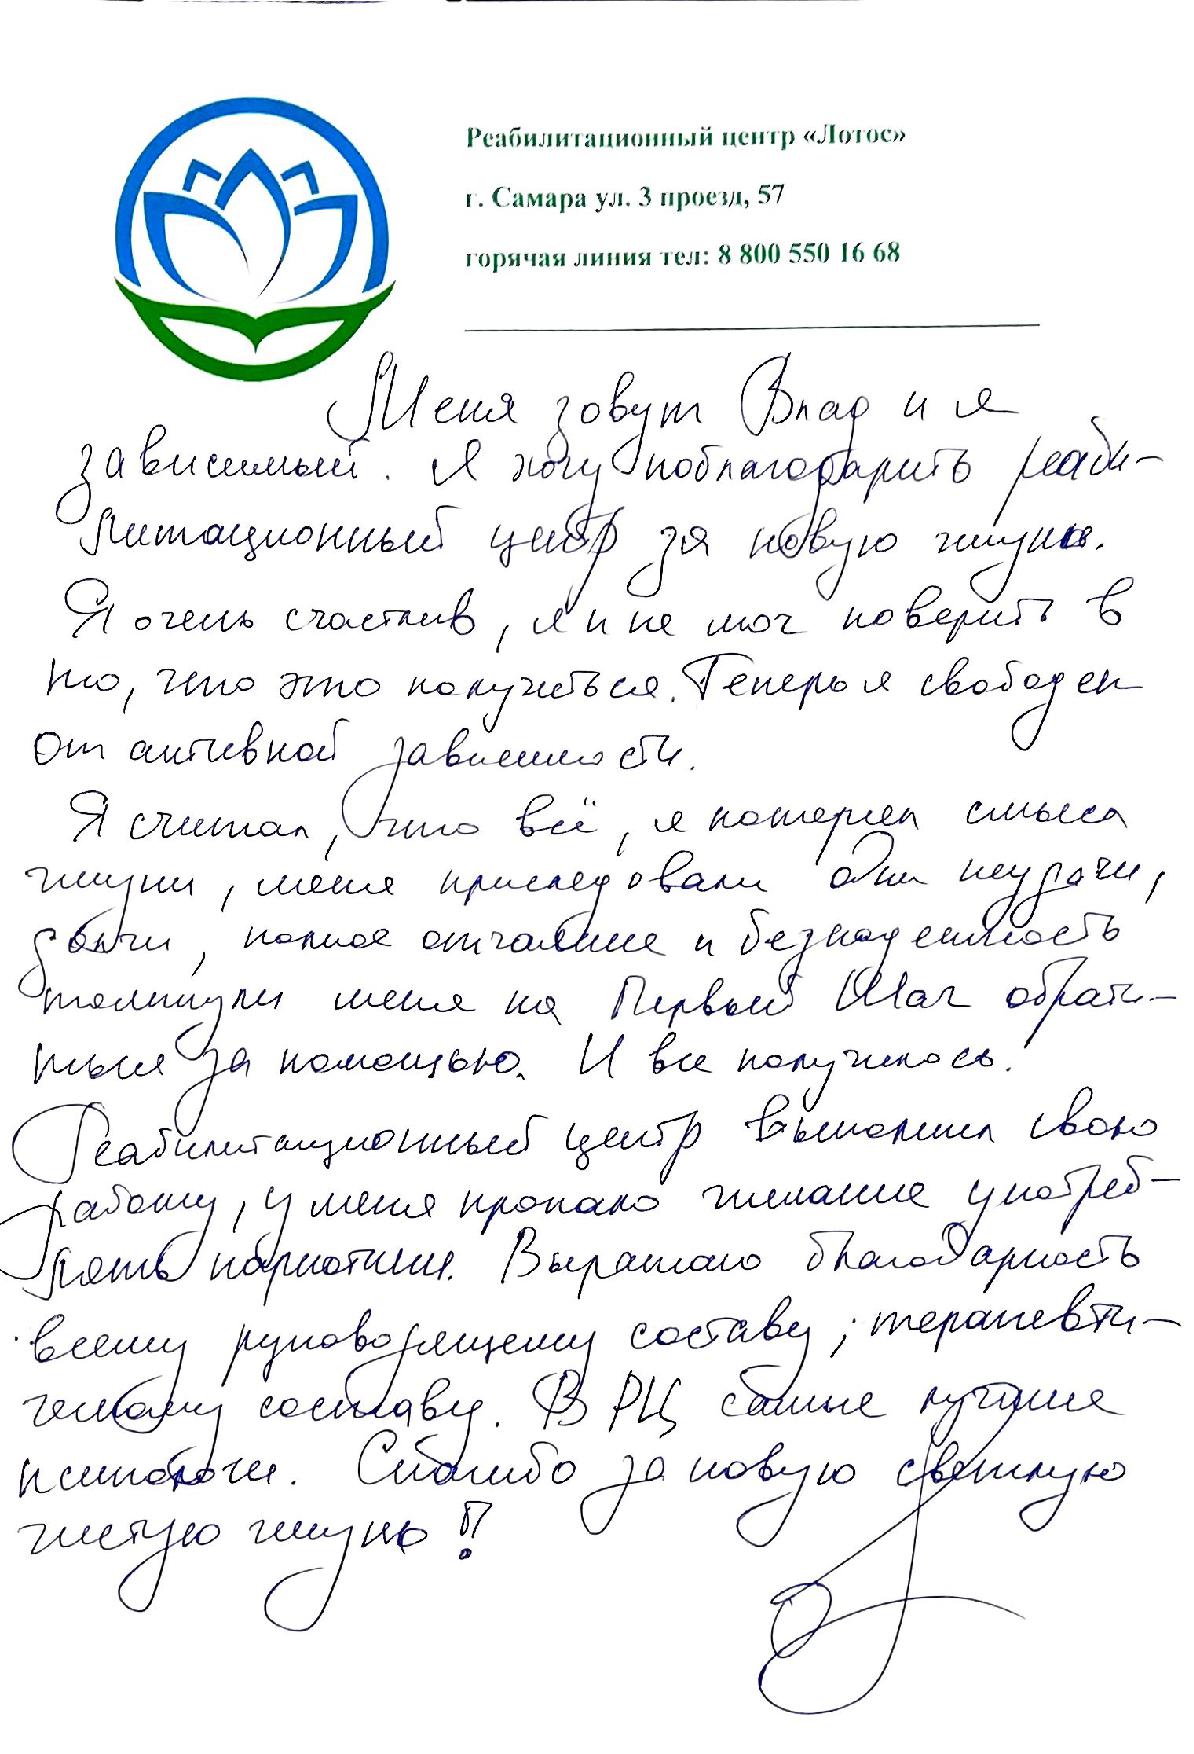 Реабилитационный центр «Лотос»
г. Самара ул. 3 проезд, 57
горячая линия тел: 8 800 550 16 68
Меня зовут Влад и я
зависимый. Я хочу поблагодарить реаби-
литационный центр за новую жизнь.
Я очень счастлив, я и не мог поверить в
то, что это получиться. Теперь я свободен
от активной зависимости.
Я считал, что всё, я потерял смысл
жизни, меня приследовали одни неудачи,
долги, полное отчаяние и безнадежность
толкнули меня на Первый Шаг обрати-
ться за помощью. И все получилось.
Реабилитационный центр выполнил свою
работу, у меня пропало желание употреб-
лять наркотики. Выражаю благодарность
всему руководящему составу, терапевти-
ческому составу. В РЦ самые лучшие
психологи. Спасибо за новую светлую
чистую жизнь!